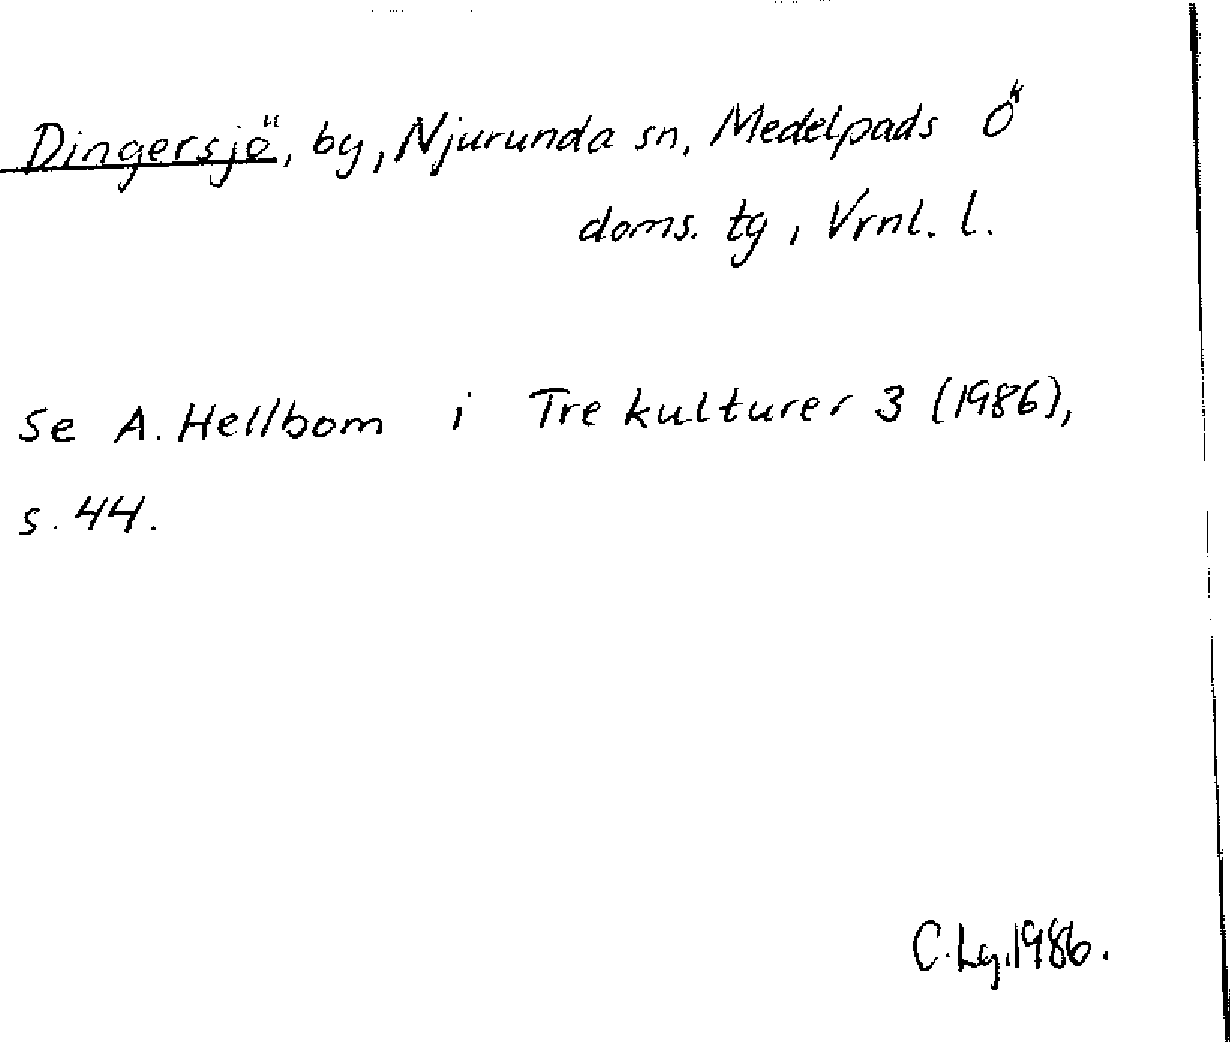 Dingersjö, by, Njurunda sn, Medelpads Ö
doms. tg, Vrnl. l.
Se A. Hellbom i Tre kulturer 3 (1986),
s. 44.
C. Lg. 1986.